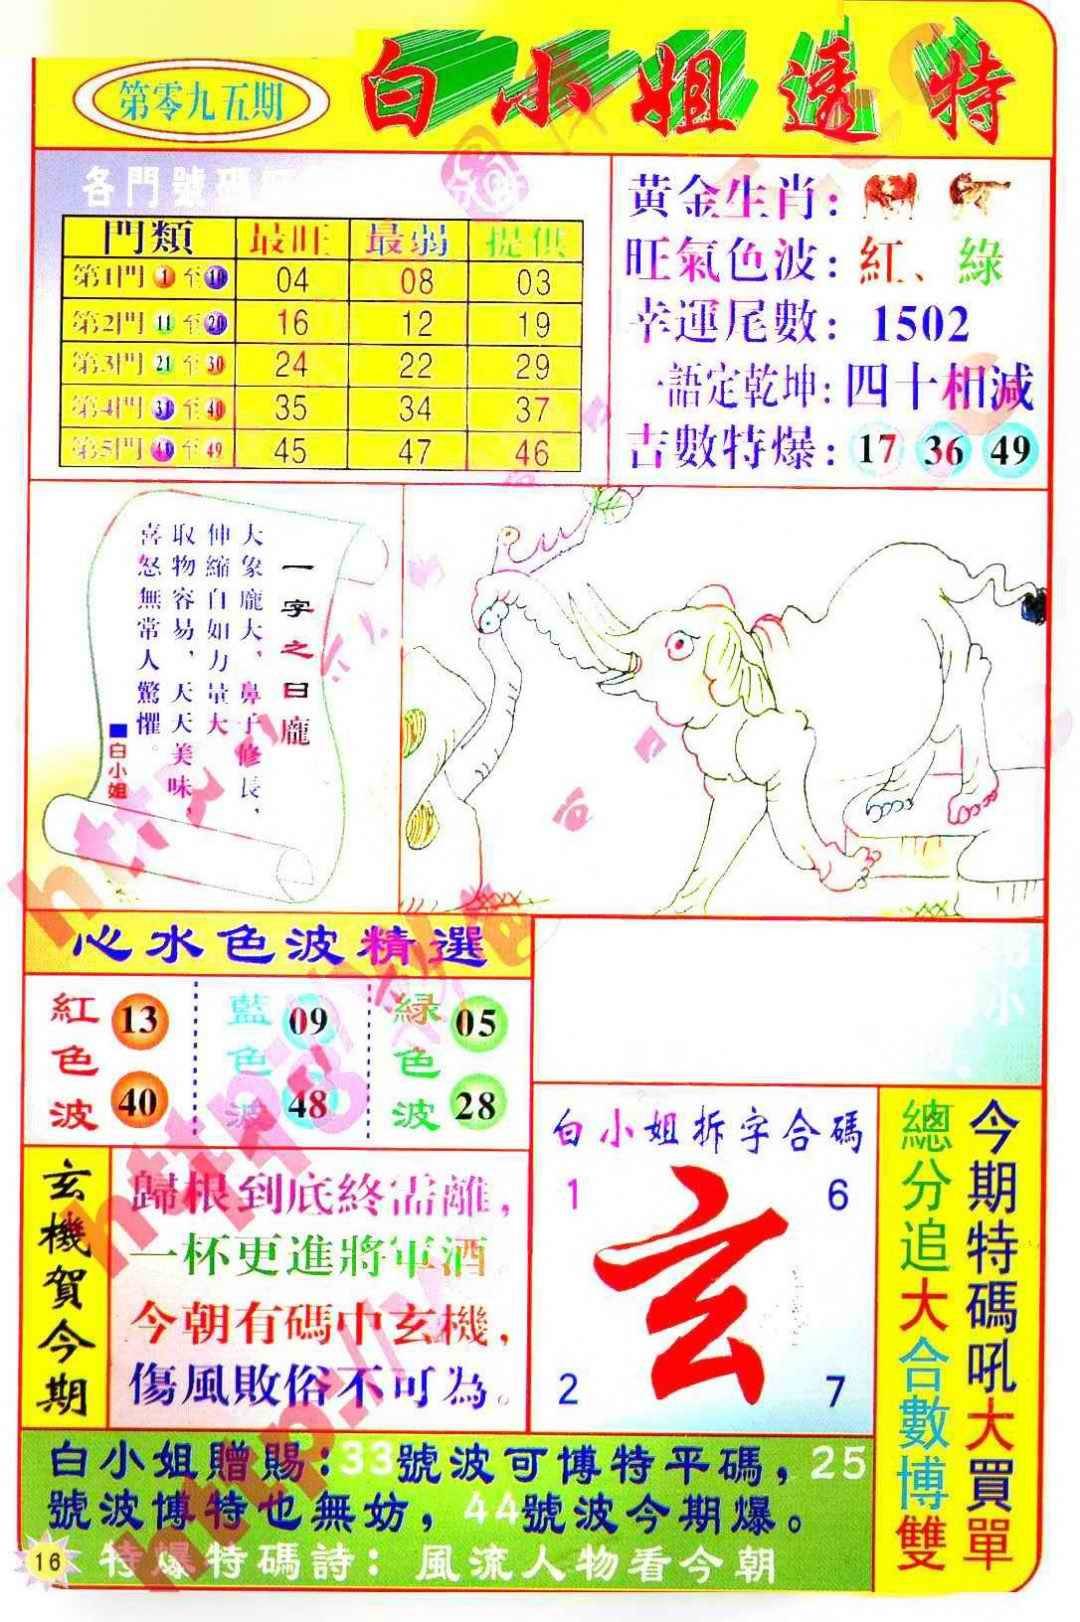 第零九五期
白小姐透特
各門號碼
門類 最旺 最弱 提供
第1門 1 至 10 04 08 03
第2門 11 至 20 16 12 19
第3門 21 至 30 24 22 29
第4門 31 至 40 35 34 37
第5門 40 至 49 45 47 46
黃金生肖：
旺氣色波：紅、綠
幸運尾數：1502
一語定乾坤：四十相減
吉數特爆：17 36 49
一字之曰龐
大象龐大，鼻子修長，
伸縮自如力量大
取物容易，天天美味，
喜怒無常人驚懼。
■白小姐
心水色波精選
紅色波 13 40
藍色波 09 48
綠色波 05 28
玄機賀今期
歸根到底終需離，
一杯更進將軍酒。
今朝有碼中玄機，
傷風敗俗不可為。
白小姐拆字合碼
1 6
玄
2 7
今期特碼吼大買單
總分追大合數博雙
白小姐贈賜：33號波可博特平碼，25
號波博特也無妨，44號波今期爆。
特爆特碼詩：風流人物看今朝
16